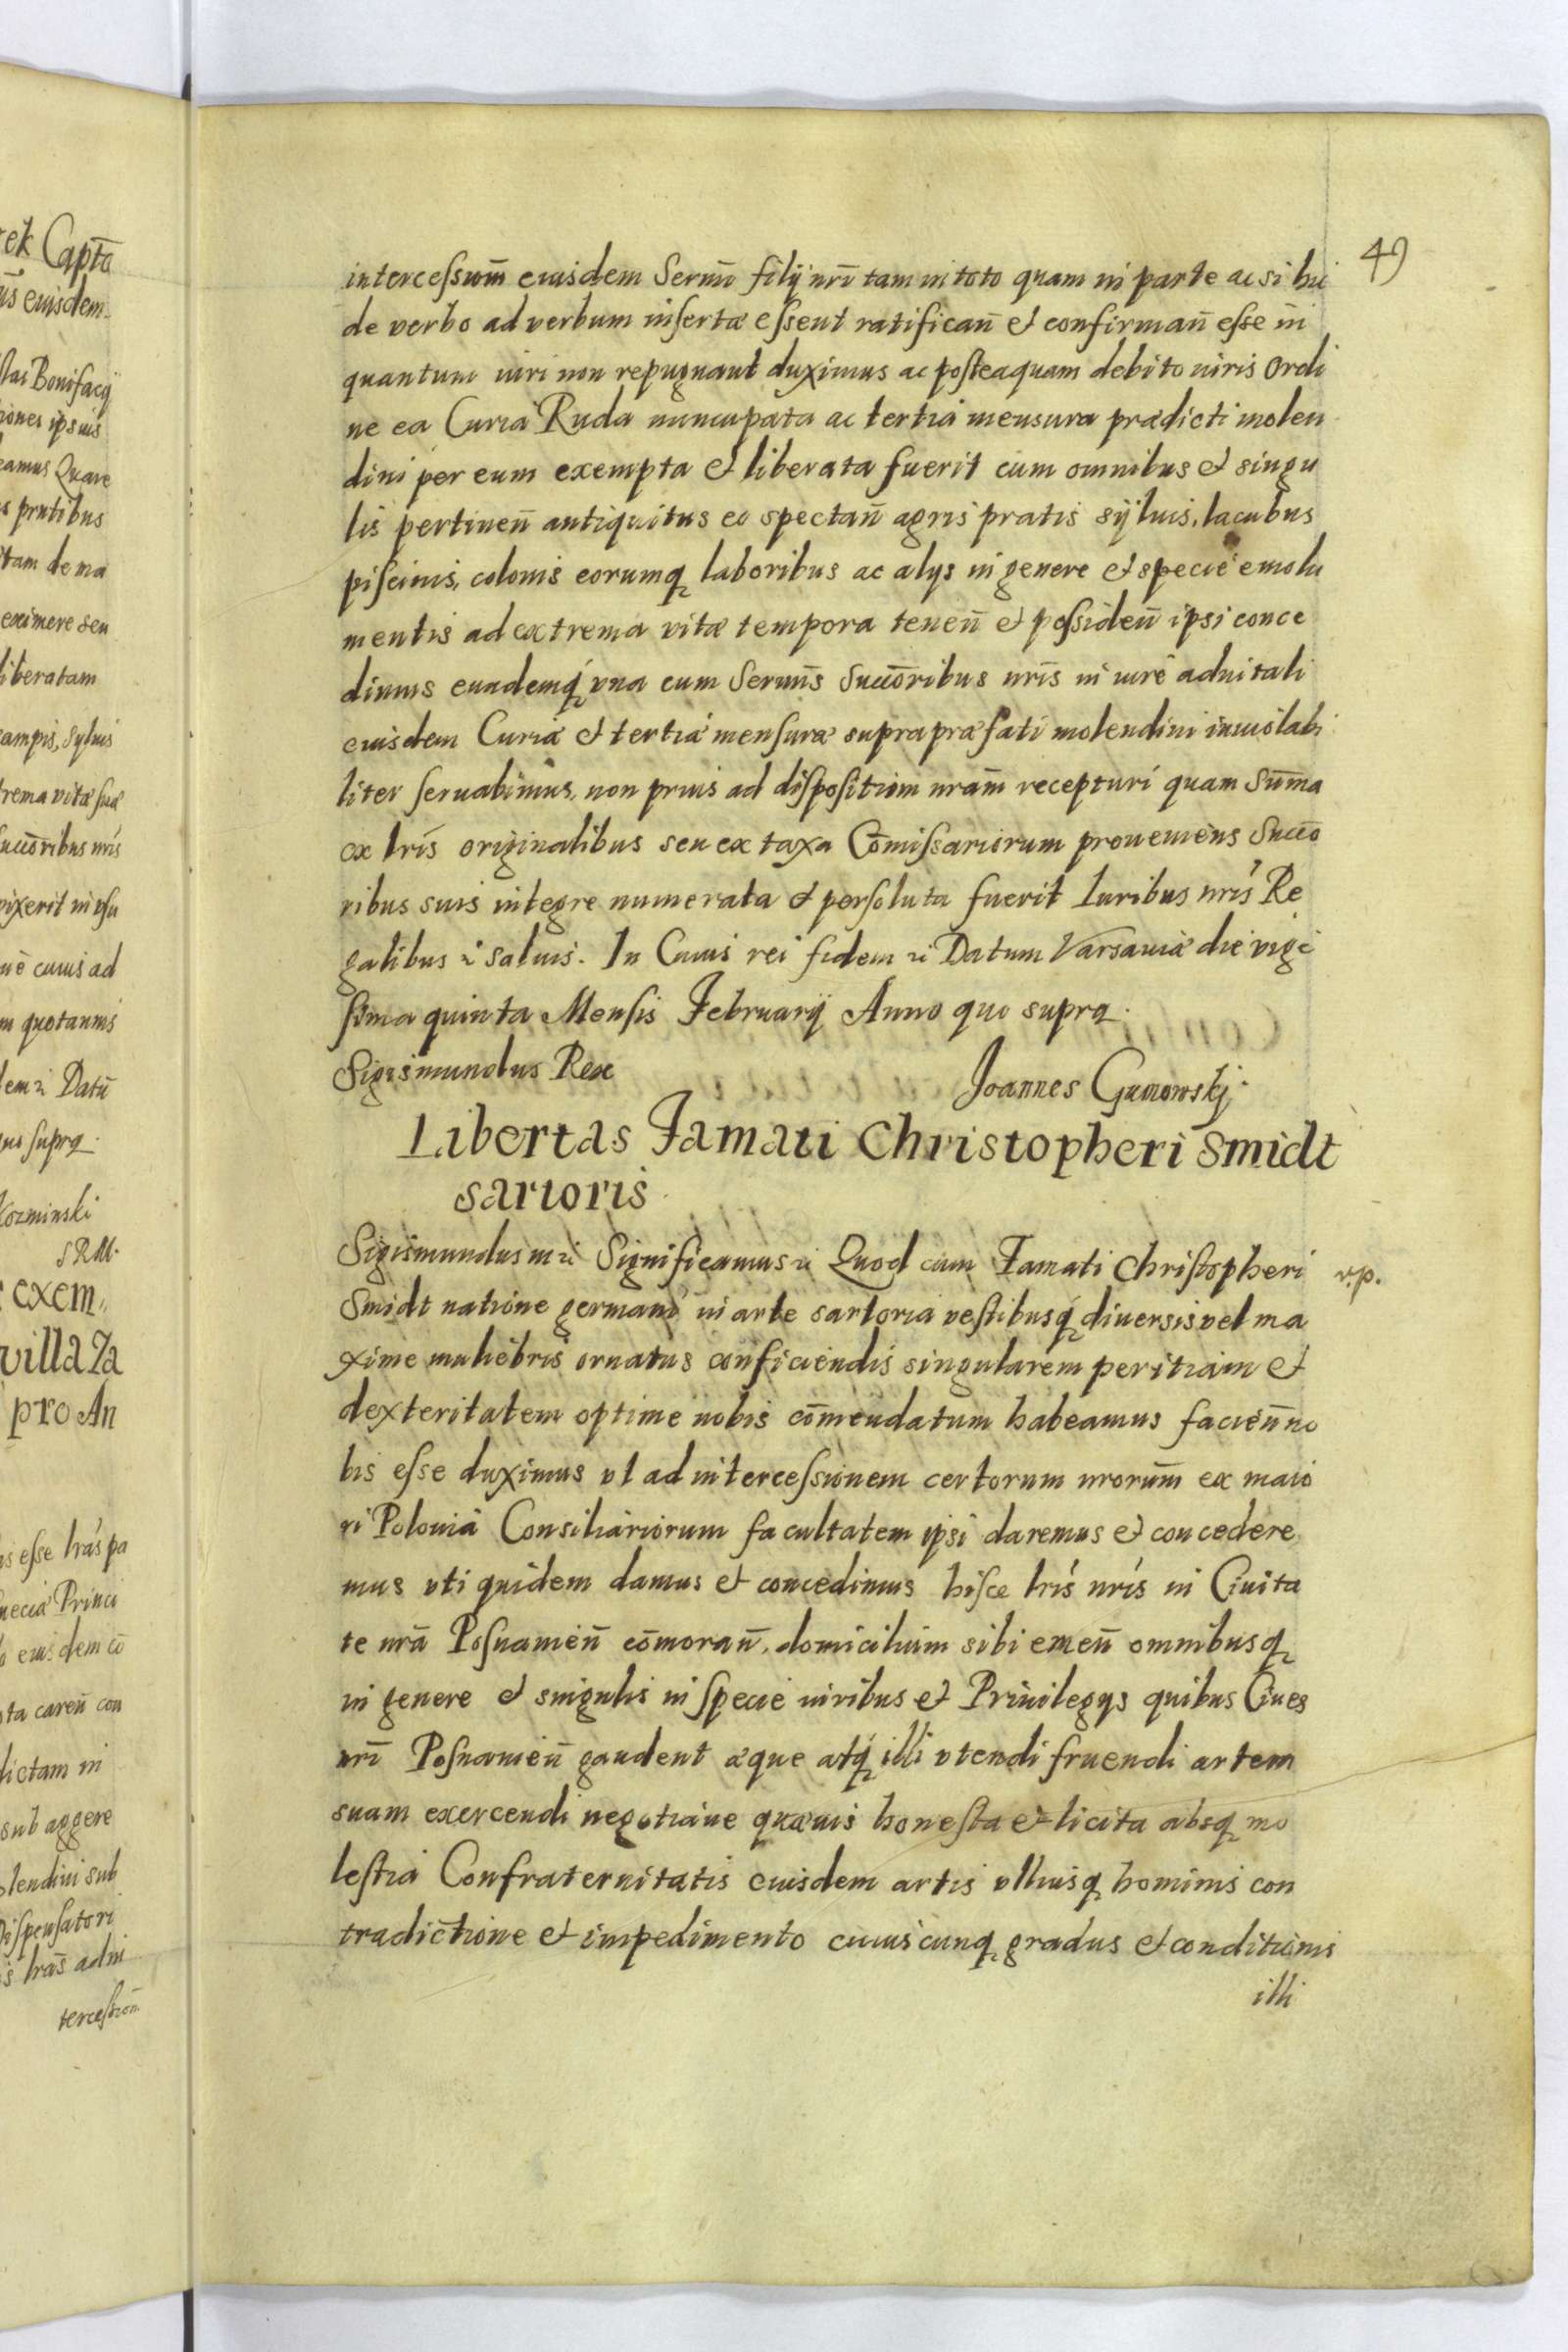 49
intercessiom̄ eiusdem Sermi filij nrī tam in toto quam in parte ac si hic
de verbo ad verbum insertæ essent ratifican̄ et confirman̄ esse in
quantum iuri non repugnant duximus ac posteaquam debito iuris ordi
ne ea Curia Ruda nuncupata ac tertia mensura prædicti molen
dini per eum exempta et liberata fuerit cum omnibus et singu
lis pertinen̄ antiquitus eo spectan̄ agris pratis syluis, lacubus
piscinis, colonis eorumq laboribus ac alijs in genere et specie emolu
mentis ad extrema vitæ tempora tenen̄ et possiden̄ ipsi conce
dimus eundemq́ una cum Sermīs Succoribus nrīs in iure aduitali
eiusdem Curiæ et tertiæ mensuræ supra præfati molendini inuiolabi
liter seruabimus, non prius ad dispositiom nram̄ recepturi quam Sum̄a
ex lrīs originalibus seu ex taxa Com̄issariorum proueniens Succo
ribus suis integre numerata et persoluta fuerit Iuribus nrīs Re
galibus ꝛ saluis. In Cuius rei fidem ꝛ Datum Varsauiæ die vige
sima quinta Mensis Februarij Anno quo supra.
Sigismundus Rex
Joannes
Libertas Famati Christopheri Smidt
sartoris
Sigismundus III ꝛ Significamus ꝛ Quod cum Famati Christopheri
v.p.
Smidt natione germani in arte sartoria vestibusq́ diuersis vel ma
xime muliebris ornatus conficiendis singularem peritiam et
dexteritatem optime nobis com̄endatum habeamus facien̄ no
bis esse duximus ut ad intercessionem certorum nrorum̄ ex maio
ri Polonia Consiliariorum facultatem ipsi daremus et concedere
mus uti quidem damus et concedimus hisce lrīs nrīs in Ciuita
te nrā Posnanien̄ com̄oran̄, domicilium sibi emen̄ omnibusq
in genere et singulis in specie iuribus et Priuilegijs quibus Ciues
nrī Posnanien̄ gaudent æque atq́ illi utendi fruendi artem
suam exercendi negotiaue quæuis honesta et licita absq mo
lestia Confraternitatis eiusdem artis ulliusq hominis con
tradictione et impedimento cuiuscunq gradus et conditionis
illi